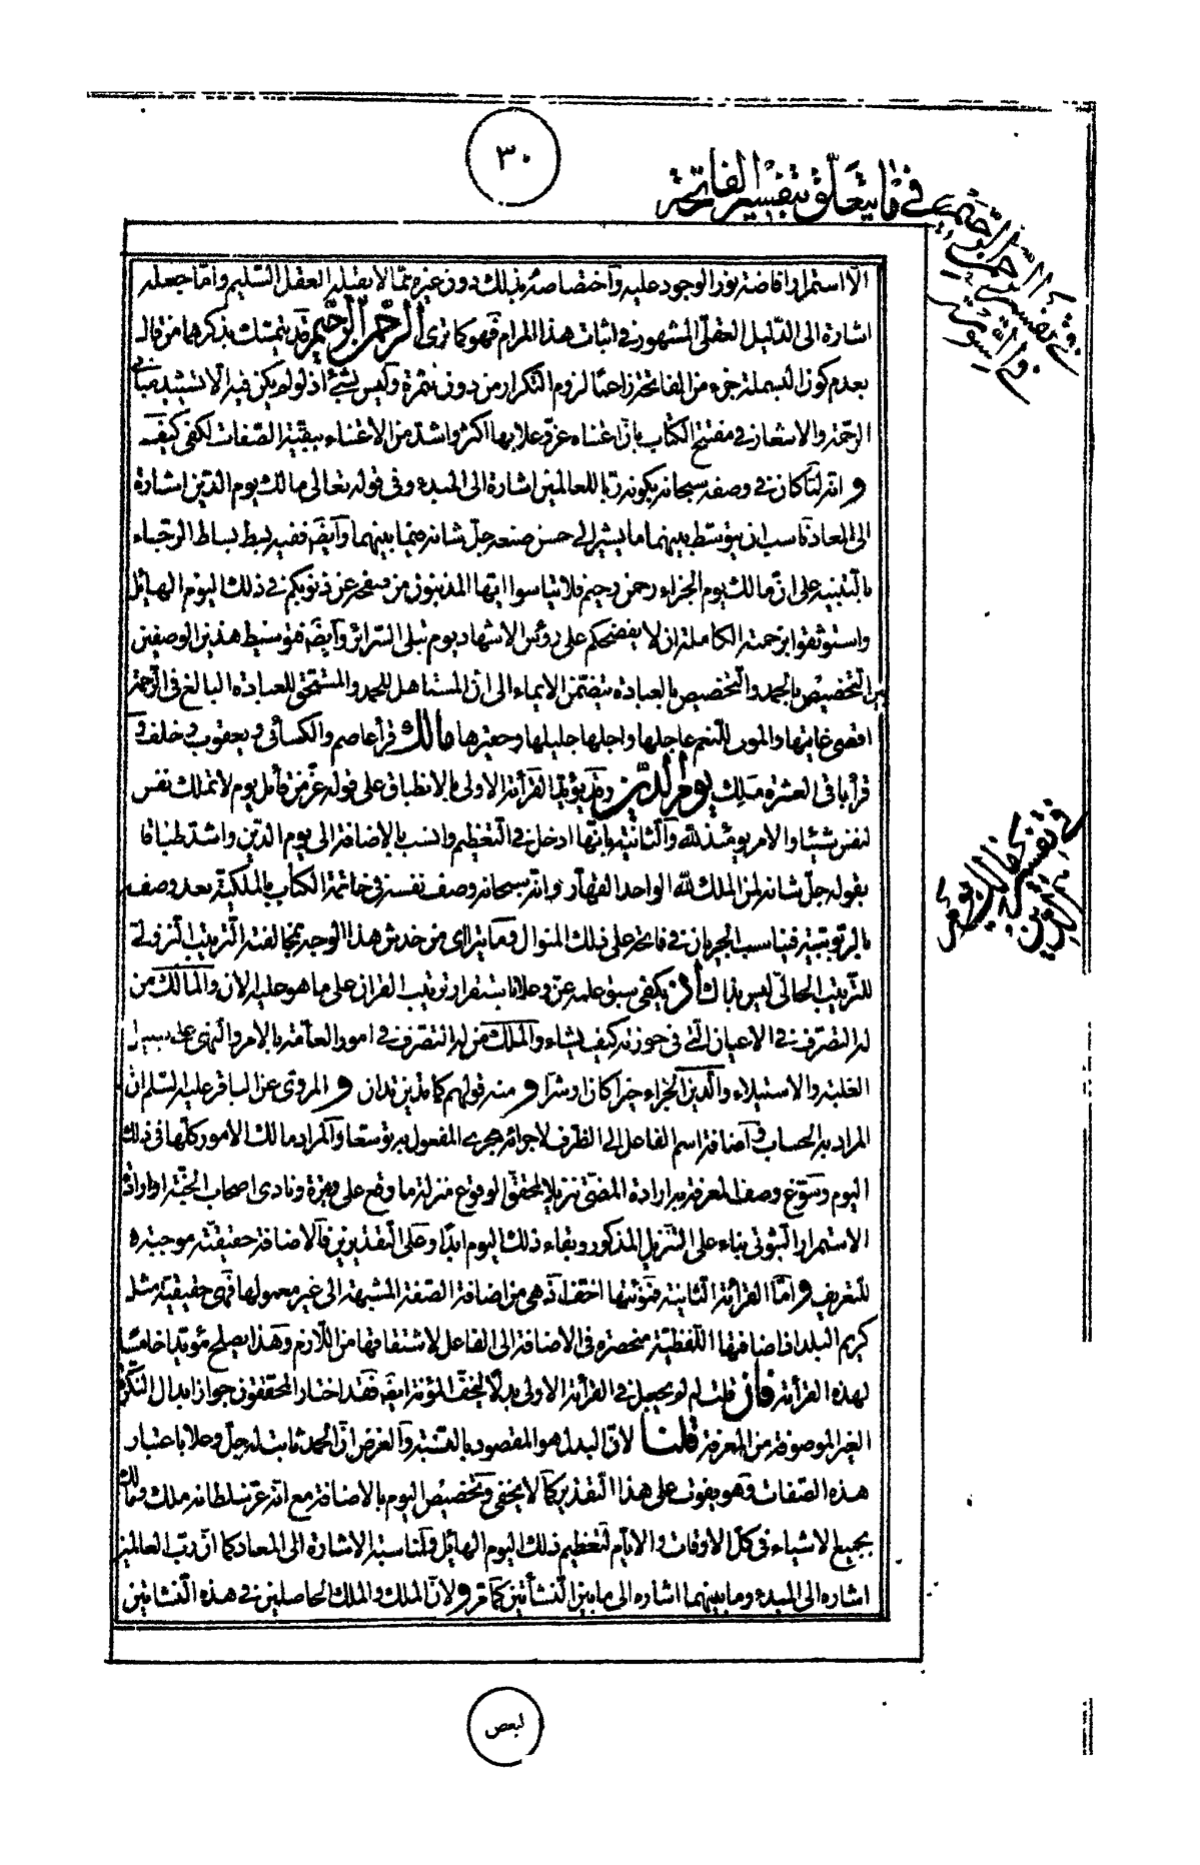 ٣٠
في ما يتعلق بتفسير الفاتحة
في تفسير الرحمن الرحيم
في السورة
الا استمرار افاضة نور الوجود عليه واختصاصه بذلك دون غيره مما لا يقبله العقل السليم واما جعله
اشارة الى الدليل العقلي المشهور في اثبات هذا المرام فهو كما ترى الرحمن الرحيم قد يتمسك بذكرهما من قال
بعدم كون البسملة جزء من الفاتحة زاعما لزوم التكرار من دون ثمرة وليس بشئ اذ لو لم يكن فيه الا تشييد مباني
الرحمة والاشعار في مفتتح الكتاب بان اعتناءه عز وعلا بها اكثر واشد من الاعتناء ببقية الصفات لكفى كيف
و انه لما كان في وصفه سبحانه بكونه ربا للعالمين اشارة الى المبدء وفي قوله تعالى مالك يوم الدين اشارة
الى المعاد ناسب ان يتوسط بينهما ما يشير الى حسن صنعه جل شانه فيما بينهما وايضا ففيه بسط بساط الرجاء
بالتنبيه على ان مالك يوم الجزاء رحمن رحيم فلا تيأسوا ايها المذنبون من صفحه عن ذنوبكم في ذلك اليوم الهائل
واستوثقوا برحمته الكاملة ان لا يفضحكم على رؤس الاشهاد يوم تبلى السرائر وايضا فتوسيط هذين الوصفين
بين التخصيص بالحمد والتخصيص بالعبادة يتضمن الايماء الى ان المستاهل للحمد والمستحق للعبادة البالغ في الرحمة
اقصى غايتها والمولى للنعم عاجلها واجلها جليلها وحقيرها مالك قرأ عاصم والكسائي و يعقوب و خلف و
قرأ باقي العشرة ملك يوم الدين وقد يؤيد القرائة الاولى بالانطباق على قوله عز من قائل يوم لا تملك نفس
لنفس شيئا والامر يومئذ لله والثانية بانها ادخل في التعظيم وانسب بالاضافة الى يوم الدين واشد طباقا
بقوله جل شانه لمن الملك لله الواحد القهار وانه سبحانه وصف نفسه في خاتمة الكتاب بالملكية بعد وصف
بالربوبية فيناسب الجريان في فاتحته على ذلك المنوال وما يترااى من خدش هذا الوجه بمخالفته الترتيب النزولي
للترتيب الحالي ليس بذاك اذ يكفي سبق علمه عز وعلا باستقرار ترتيب القران على ما هو عليه الان والمالك من
له التصرف في الاعيان التي في حوزته كيف يشاء والملك من له التصرف في امور العامة بالامر والنهي على سبيل
الغلبة والاستيلاء والدين الجزاء خيرا كان او شرا و منه قولهم كما تدين تدان و المروي عن الباقر عليه السلام ان
المراد به الحساب و اضافة اسم الفاعل الى الظرف لاجرائه مجرى المفعول به توسعا والمراد مالك الامور كلها في ذلك
اليوم وسوغ وصف المعرفة به ارادة المضي تنزيلا لمحقق الوقوع منزلة ما وقع على وتيرة ونادى اصحاب الجنة او ارادة
الاستمرار الثبوتي بناء على التنزيل المذكور وبقاء ذلك اليوم ابدا وعلى التقديرين فالاضافة حقيقية موجبة
للتعريف و اما القرائة الثانية فمؤنتها اخف اذ هي من اضافة الصفة المشبهة الى غير معمولها فهي حقيقية مثل
كريم البلد اذ اضافتها اللفظية منحصرة في الاضافة الى الفاعل لاشتقاقها من اللازم وهذا يصلح مؤيدا خامسا
لهذه القرائة فان قلت لم لم يجعل في القرائة الاولى بدلا ليخف المؤنة ايضا فقد اختار المحققون جواز ابدال النكرة
الغير الموصوفة من المعرفة قلنا لان البدل هو المقصود بالنسبة والغرض ان الحمد ثابت له جل وعلا باعتبار
هذه الصفات وهو يفوت على هذا التقدير كما لا يخفى وتخصيص اليوم بالاضافة مع انه عز سلطانه ملك ومالك
بجميع الاشياء في كل الاوقات والايام لتعظيم ذلك اليوم الهائل ولمناسبة الاشارة الى المعاد كما ان رب العالمين
اشارة الى المبدء وما بينهما اشارة الى ما بين النشأتين كما مر و لان الملك والملك الحاصلين في هذه النشأتين
في تفسير مالك يوم الدين
لبعض